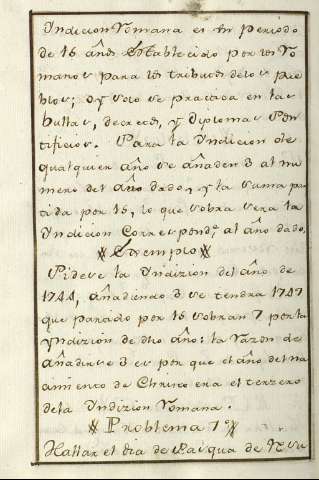 Yndicion Romana es un periodo
de 15 años Establecido por los Ro
manos para los tributos de los pue
blos; oy solo se practica en las
bullas, decretos, y diplomas Pon
tificios. Para la Yndicion de
qualquier año se añaden 3 al nu
mero del año dado, y la suma par
tida por 15, lo que sobra sera la
Yndicion Correspond.e al año dado.
Exemplo
Pidese la Yndizion del año de
1744, añadiendo 3 se tendra 1747
que partido por 15 sobran 7 por la
Yndizion de dho año: la razon de
añadirse 3 es por que el año del na
cimiento de Christo era el terzero
de la Yndizion Romana.
Problema 7o
Hallar el dia de Pasqua de